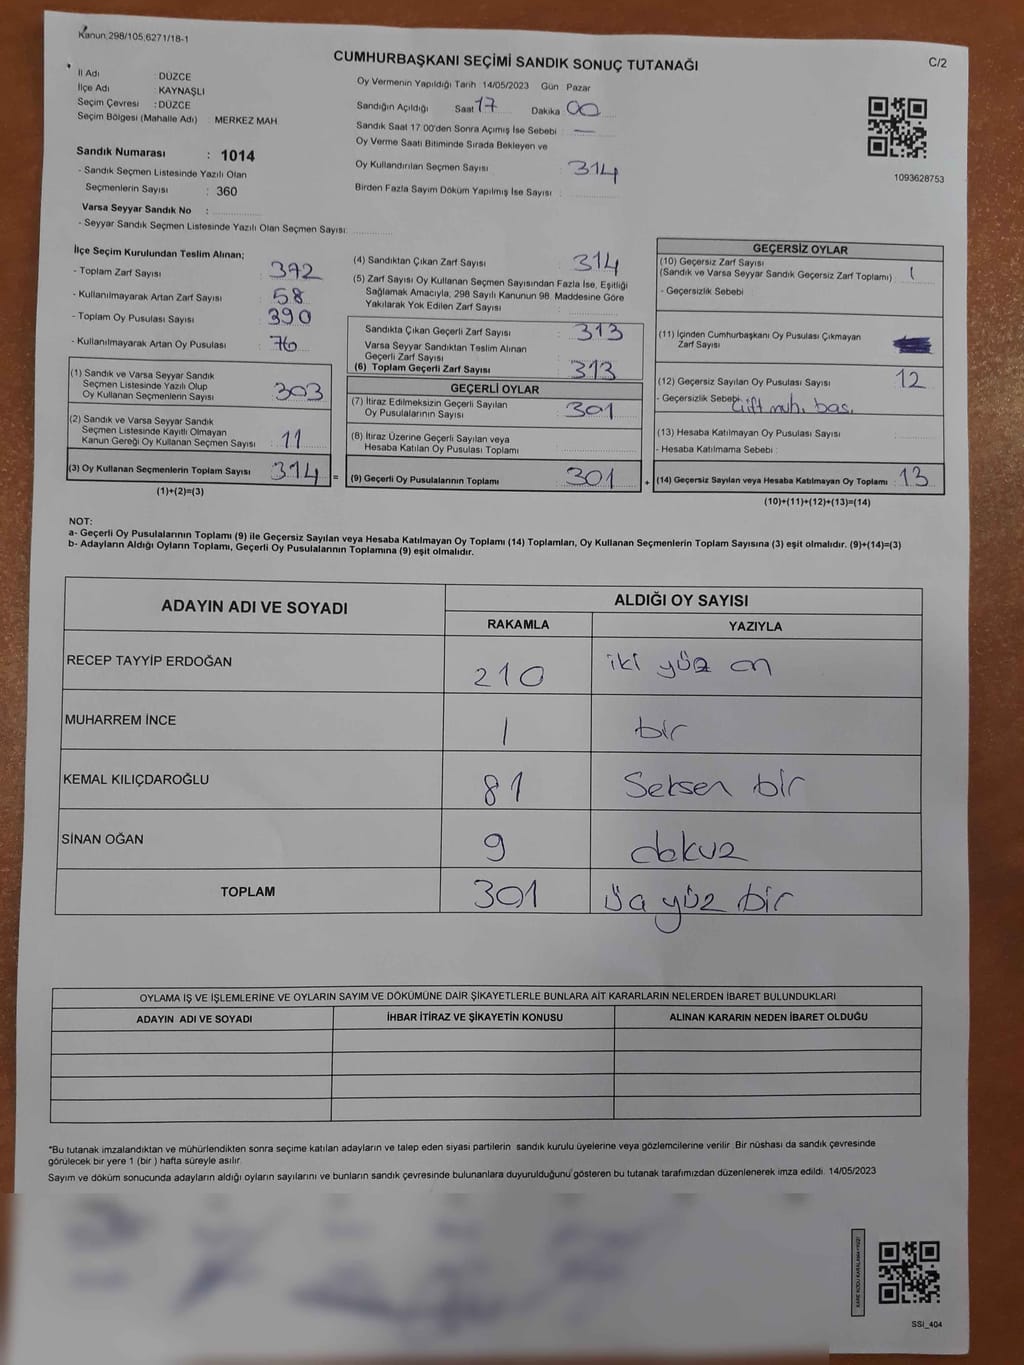 Kanun.298/105,6271/18-1
CUMHURBAŞKANI SEÇİMİ SANDIK SONUÇ TUTANAĞI
C/2
İl Adı : DÜZCE
İlçe Adı : KAYNAŞLI
Seçim Çevresi : DÜZCE
Seçim Bölgesi (Mahalle Adı) : MERKEZ MAH.
Sandık Numarası : 1014
- Sandık Seçmen Listesinde Yazılı Olan
Seçmenlerin Sayısı : 360
Varsa Seyyar Sandık No :
- Seyyar Sandık Seçmen Listesinde Yazılı Olan Seçmen Sayısı:
Oy Vermenin Yapıldığı Tarih 14/05/2023 Gün Pazar
Sandığın Açıldığı Saat 17 Dakika 00
Sandık Saat 17:00'den Sonra Açımış İse Sebebi : —
Oy Verme Saati Bitiminde Sırada Bekleyen ve
Oy Kullandırılan Seçmen Sayısı 314
Birden Fazla Sayım Döküm Yapılmış İse Sayısı
1093628753
İlçe Seçim Kurulundan Teslim Alınan;
- Toplam Zarf Sayısı : 372
- Kullanılmayarak Artan Zarf Sayısı : 58
- Toplam Oy Pusulası Sayısı : 390
- Kullanılmayarak Artan Oy Pusulası : 76
(1) Sandık ve Varsa Seyyar Sandık
Seçmen Listesinde Yazılı Olup
Oy Kullanan Seçmenlerin Sayısı : 303
(2) Sandık ve Varsa Seyyar Sandık
Seçmen Listesinde Kayıtlı Olmayan
Kanun Gereği Oy Kullanan Seçmen Sayısı : 11
(3) Oy Kullanan Seçmenlerin Toplam Sayısı : 314
=
(1)+(2)=(3)
(4) Sandıktan Çıkan Zarf Sayısı : 314
(5) Zarf Sayısı Oy Kullanan Seçmen Sayısından Fazla İse, Eşitliği
Sağlamak Amacıyla, 298 Sayılı Kanunun 98. Maddesine Göre
Yakılarak Yok Edilen Zarf Sayısı
Sandıkta Çıkan Geçerli Zarf Sayısı : 313
Varsa Seyyar Sandıktan Teslim Alınan
Geçerli Zarf Sayısı
(6) Toplam Geçerli Zarf Sayısı : 313
GEÇERLİ OYLAR
(7) İtiraz Edilmeksizin Geçerli Sayılan
Oy Pusulalarının Sayısı : 301
(8) İtiraz Üzerine Geçerli Sayılan veya
Hesaba Katılan Oy Pusulası Toplamı
(9) Geçerli Oy Pusulalarının Toplamı : 301
+
GEÇERSİZ OYLAR
(10) Geçersiz Zarf Sayısı
(Sandık ve Varsa Seyyar Sandık Geçersiz Zarf Toplamı) : 1
- Geçersizlik Sebebi :
(11) İçinden Cumhurbaşkanı Oy Pusulası Çıkmayan
Zarf Sayısı
(12) Geçersiz Sayılan Oy Pusulası Sayısı : 12
- Geçersizlik Sebebi: Çift müh. bas.
(13) Hesaba Katılmayan Oy Pusulası Sayısı
- Hesaba Katılmama Sebebi :
(14) Geçersiz Sayılan veya Hesaba Katılmayan Oy Toplamı : 13
(10)+(11)+(12)+(13)=(14)
NOT:
a- Geçerli Oy Pusulalarının Toplamı (9) ile Geçersiz Sayılan veya Hesaba Katılmayan Oy Toplamı (14) Toplamları, Oy Kullanan Seçmenlerin Toplam Sayısına (3) eşit olmalıdır. (9)+(14)=(3)
b- Adayların Aldığı Oyların Toplamı, Geçerli Oy Pusulalarının Toplamına (9) eşit olmalıdır.
ADAYIN ADI VE SOYADI
ALDIĞI OY SAYISI
RAKAMLA YAZIYLA
RECEP TAYYİP ERDOĞAN 210 iki yüz on
MUHARREM İNCE 1 bir
KEMAL KILIÇDAROĞLU 81 Seksen bir
SİNAN OĞAN 9 dokuz
TOPLAM 301 üç yüz bir
OYLAMA İŞ VE İŞLEMLERİNE VE OYLARIN SAYIM VE DÖKÜMÜNE DAİR ŞİKAYETLERLE BUNLARA AİT KARARLARIN NELERDEN İBARET BULUNDUKLARI
ADAYIN ADI VE SOYADI İHBAR İTİRAZ VE ŞİKAYETİN KONUSU ALINAN KARARIN NEDEN İBARET OLDUĞU
*Bu tutanak imzalandıktan ve mühürlendikten sonra seçime katılan adayların ve talep eden siyasi partilerin sandık kurulu üyelerine veya gözlemcilerine verilir. Bir nüshası da sandık çevresinde
görülecek bir yere 1 (bir ) hafta süreyle asılır.
Sayım ve döküm sonucunda adayların aldığı oyların sayılarını ve bunların sandık çevresinde bulunanlara duyurulduğunu gösteren bu tutanak tarafımızdan düzenlenerek imza edildi. 14/05/2023
SSI_404